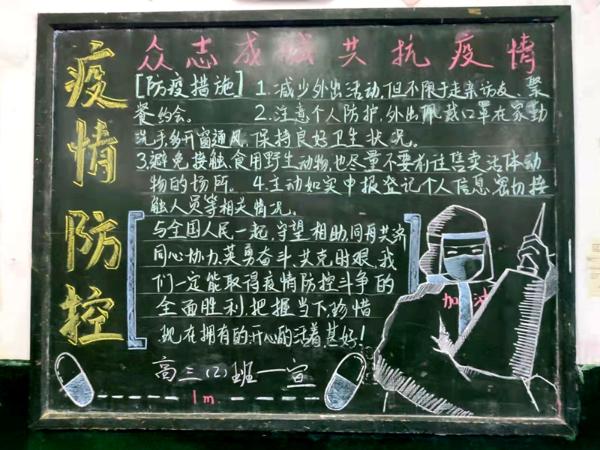 众志成城共抗疫情
疫情防控
[防疫措施] 1.减少外出活动,但不限于走亲访友、聚
餐约会。 2.注意个人防护,外出佩戴口罩在家勤
洗手多开窗通风,保持良好卫生状况。
3.避免接触、食用野生动物,也尽量不要前往售卖活体动
物的场所。 4.主动如实申报登记个人信息,密切接
触人员等相关情况。
与全国人民一起,守望相助,同舟共济
同心协力,英勇奋斗共克时艰,我
们一定能取得疫情防控斗争的
全面胜利,把握当下珍惜
现在拥有的,开心的活着,甚好!
加油
高三(2)班一宣
1m